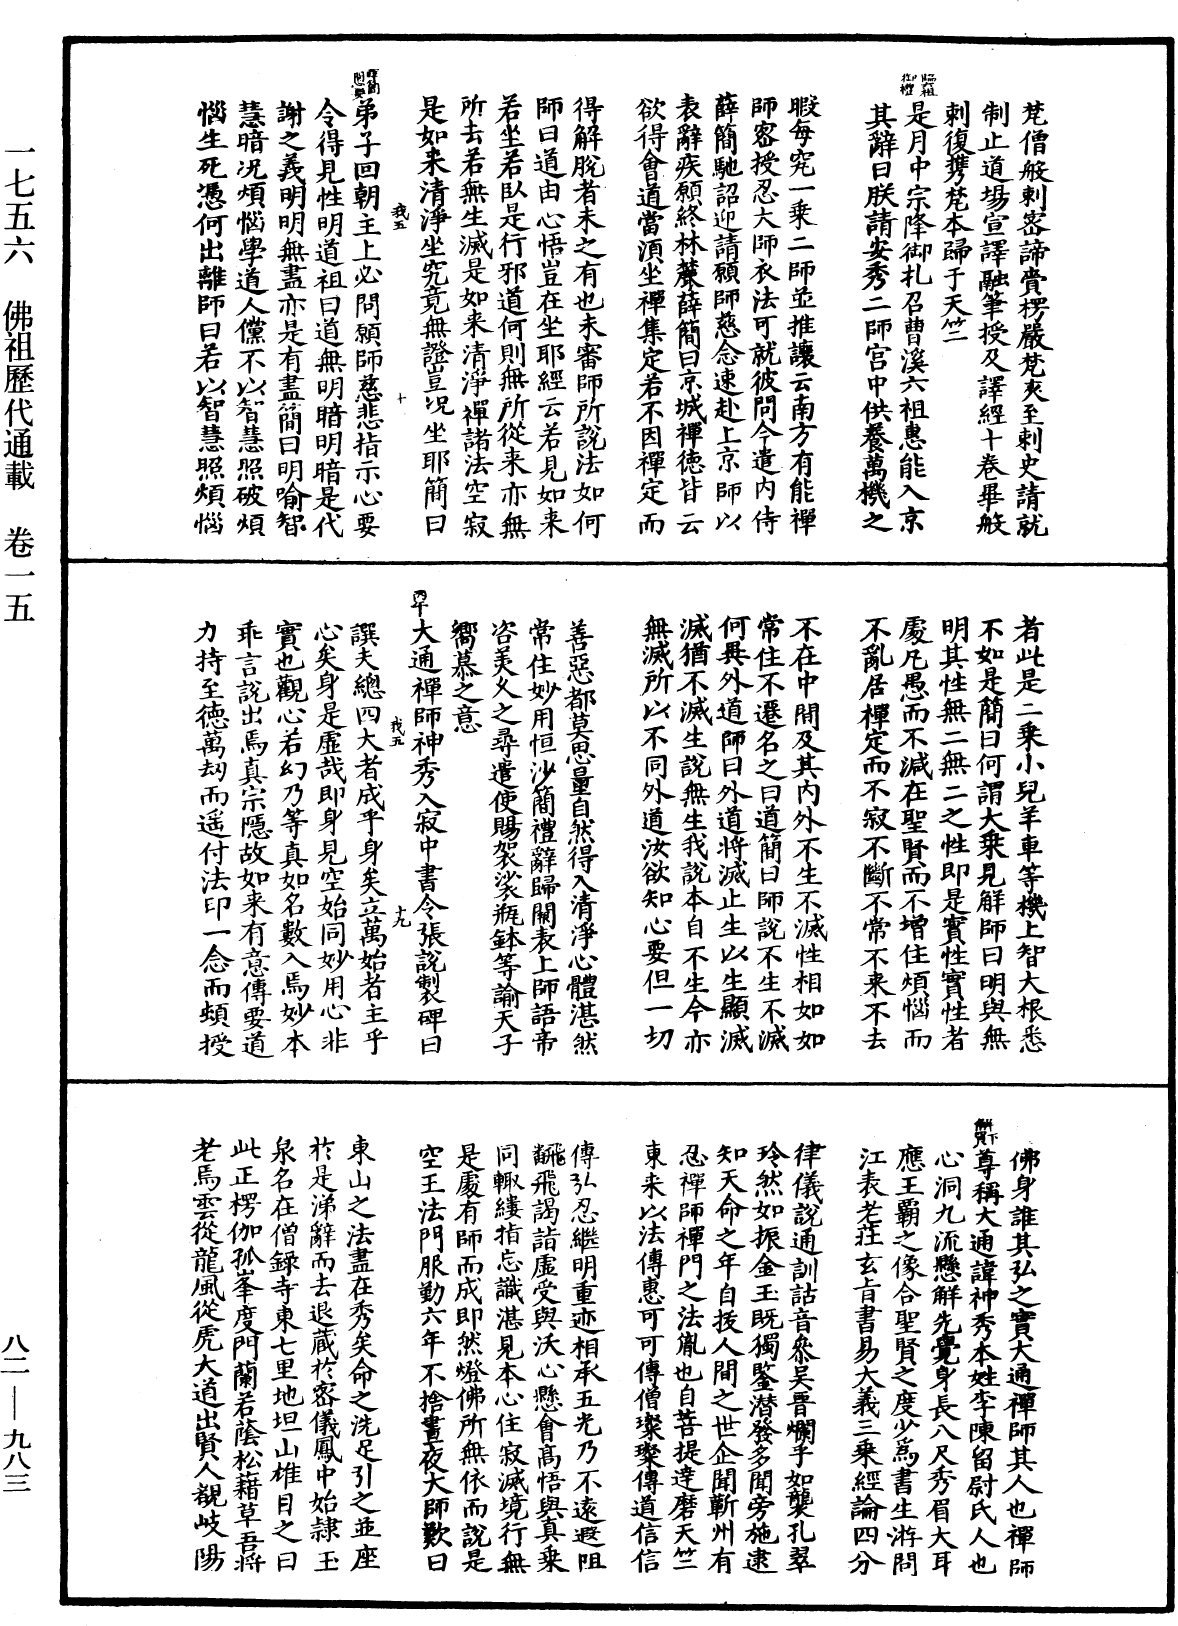 一七五六　佛祖歷代通載　卷一五
八二—九八三
梵僧般剌密諦賫楞嚴梵夾至剌史請就
制止道場宣譯融筆授及譯經十卷畢般
剌復携梵本歸于天竺
是月中宗降御札召曹溪六祖惠能入京
其辭曰朕請安秀二師宫中供養萬機之
暇每究一乗二師並推讓云南方有能禪
師密授忍大師衣法可就彼問今遣内侍
薛簡馳詔迎請願師慈念速赴上京師以
表辭疾願終林麓薛簡曰京城禪德皆云
欲得會道當湏坐禪集定若不因禪定而
得解脫者未之有也未審師所說法如何
師曰道由心悟豈在坐耶經云若見如来
若坐若臥是行邪道何則無所從来亦無
所去若無生滅是如来清淨禪諸法空寂
是如来清淨坐究竟無證豈况坐耶簡曰
我五
十
弟子回朝主上必問願師慈悲指示心要
令得見性明道祖曰道無明暗明暗是代
謝之義明明無盡亦是有盡簡曰明喻智
慧暗况煩惱學道人儻不以智慧照破煩
惱生死憑何出離師曰若以智慧照煩惱
者此是二乗小兒羊車等機上智大根悉
不如是簡曰何謂大乗見解師曰明與無
明其性無二無二之性即是實性實性者
處凡愚而不減在聖賢而不增住煩惱而
不亂居禪定而不寂不斷不常不来不去
不在中間及其内外不生不滅性相如如
常住不遷名之曰道簡曰師說不生不滅
何異外道師曰外道将滅止生以生顯滅
滅猶不滅生說無生我說本自不生今亦
無滅所以不同外道汝欲知心要但一切
善惡都莫思量自然得入清淨心體湛然
常住妙用恒沙簡禮辭歸闕表上師語帝
咨美久之尋遣使賜袈裟瓶鉢等諭天子
嚮慕之意
丙午
大通禪師神秀入寂中書令張說製碑曰
我五
十九
譔夫總四大者成乎身矣立萬始者主乎
心矣身是虛哉即身見空始同妙用心非
實也觀心若幻乃等真如名數入焉妙本
乖言說出焉真宗隱故如来有意傳要道
力持至德萬刼而遥付法印一念而頓授
佛身誰其弘之實大通禪師其人也禪師
尊稱大通諱神秀本姓李陳留尉氏人也
心洞九流懸解先覺身長八尺秀眉大耳
應王覇之像合聖賢之度少為書生游問
江表老莊玄旨書易大義三乗經論四分
律儀說通訓詁音叅吴晋爛乎如襲孔翠
玲然如振金玉既獨鑒潜發多聞旁施逮
知天命之年自拔人間之世企聞蘄州有
忍禪師禪門之法胤也自菩提達磨天竺
東来以法傳惠可可傳僧璨璨傳道信信
傳弘忍繼明重迹相承五光乃不遠遐阻
飜飛謁詣虛受與沃心懸會高悟與真乗
同轍縷指忘識湛見本心住寂滅境行無
是處有師而成即然燈佛所無依而說是
空王法門服勤六年不捨晝夜大師歎曰
東山之法盡在秀矣命之洗足引之並座
於是涕辭而去退蔵於密儀鳳中始隸玉
泉名在僧録寺東七里地坦山椎目之曰
此正楞伽孤峯度門蘭若蔭松藉草吾将
老焉雲從龍風從虎大道出賢人覩岐陽